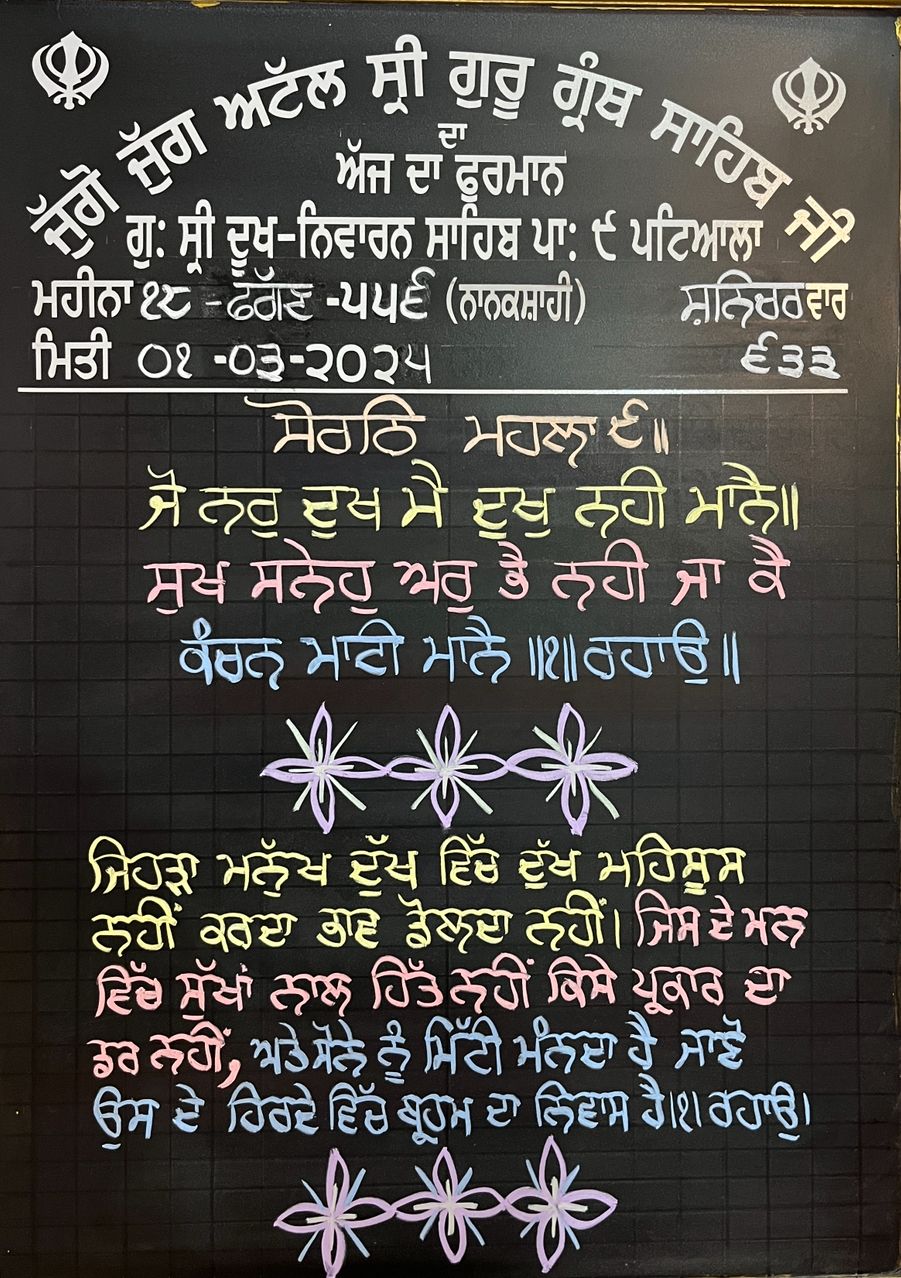 ਜੁੱਗੋ ਜੁੱਗ ਅਟੱਲ ਸ੍ਰੀ ਗੁਰੂ ਗ੍ਰੰਥ ਸਾਹਿਬ ਜੀ
ਦਾ
ਅੱਜ ਦਾ ਫੁਰਮਾਨ
ਗੁ: ਸ੍ਰੀ ਦੂਖ-ਨਿਵਾਰਨ ਸਾਹਿਬ ਪਾ: ੯ ਪਟਿਆਲਾ
ਮਹੀਨਾ ੧੮ - ਫੱਗਣ -੫੫੬ (ਨਾਨਕਸ਼ਾਹੀ) ਸ਼ਨਿਚਰਵਾਰ
ਮਿਤੀ ੦੧ -੦੩-੨੦੨੫ ੬੩੩
ਸੋਰਠਿ ਮਹਲਾ ੯॥
ਜੋ ਨਰੁ ਦੁਖ ਮੈ ਦੁਖੁ ਨਹੀ ਮਾਨੈ॥
ਸੁਖ ਸਨੇਹੁ ਅਰੁ ਭੈ ਨਹੀ ਜਾ ਕੈ
ਕੰਚਨ ਮਾਟੀ ਮਾਨੈ ॥੧॥ ਰਹਾਉ ॥
ਜਿਹੜਾ ਮਨੁੱਖ ਦੁੱਖ ਵਿੱਚ ਦੁੱਖ ਮਹਿਸੂਸ
ਨਹੀਂ ਕਰਦਾ ਭਾਵ ਡੋਲਦਾ ਨਹੀਂ। ਜਿਸ ਦੇ ਮਨ
ਵਿੱਚ ਸੁੱਖਾਂ ਨਾਲ ਹਿੱਤ ਨਹੀਂ ਕਿਸੇ ਪ੍ਰਕਾਰ ਦਾ
ਡਰ ਨਹੀਂ, ਅਤੇ ਸੋਨੇ ਨੂੰ ਮਿੱਟੀ ਮੰਨਦਾ ਹੈ ਜਾਣੋ
ਉਸ ਦੇ ਹਿਰਦੇ ਵਿੱਚ ਬ੍ਰਹਮ ਦਾ ਨਿਵਾਸ ਹੈ।੧। ਰਹਾਉ।